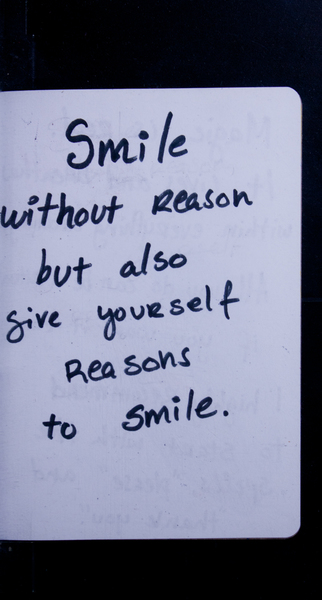 Smile
without Reason
but also
give yourself
Reasons
to smile.